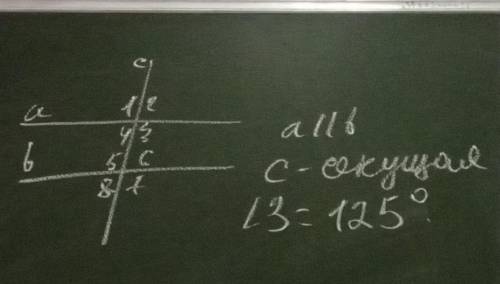 c
a 1 2
4 3
b 5 6
8 7
a || b
c - секущая
∠3 = 125°